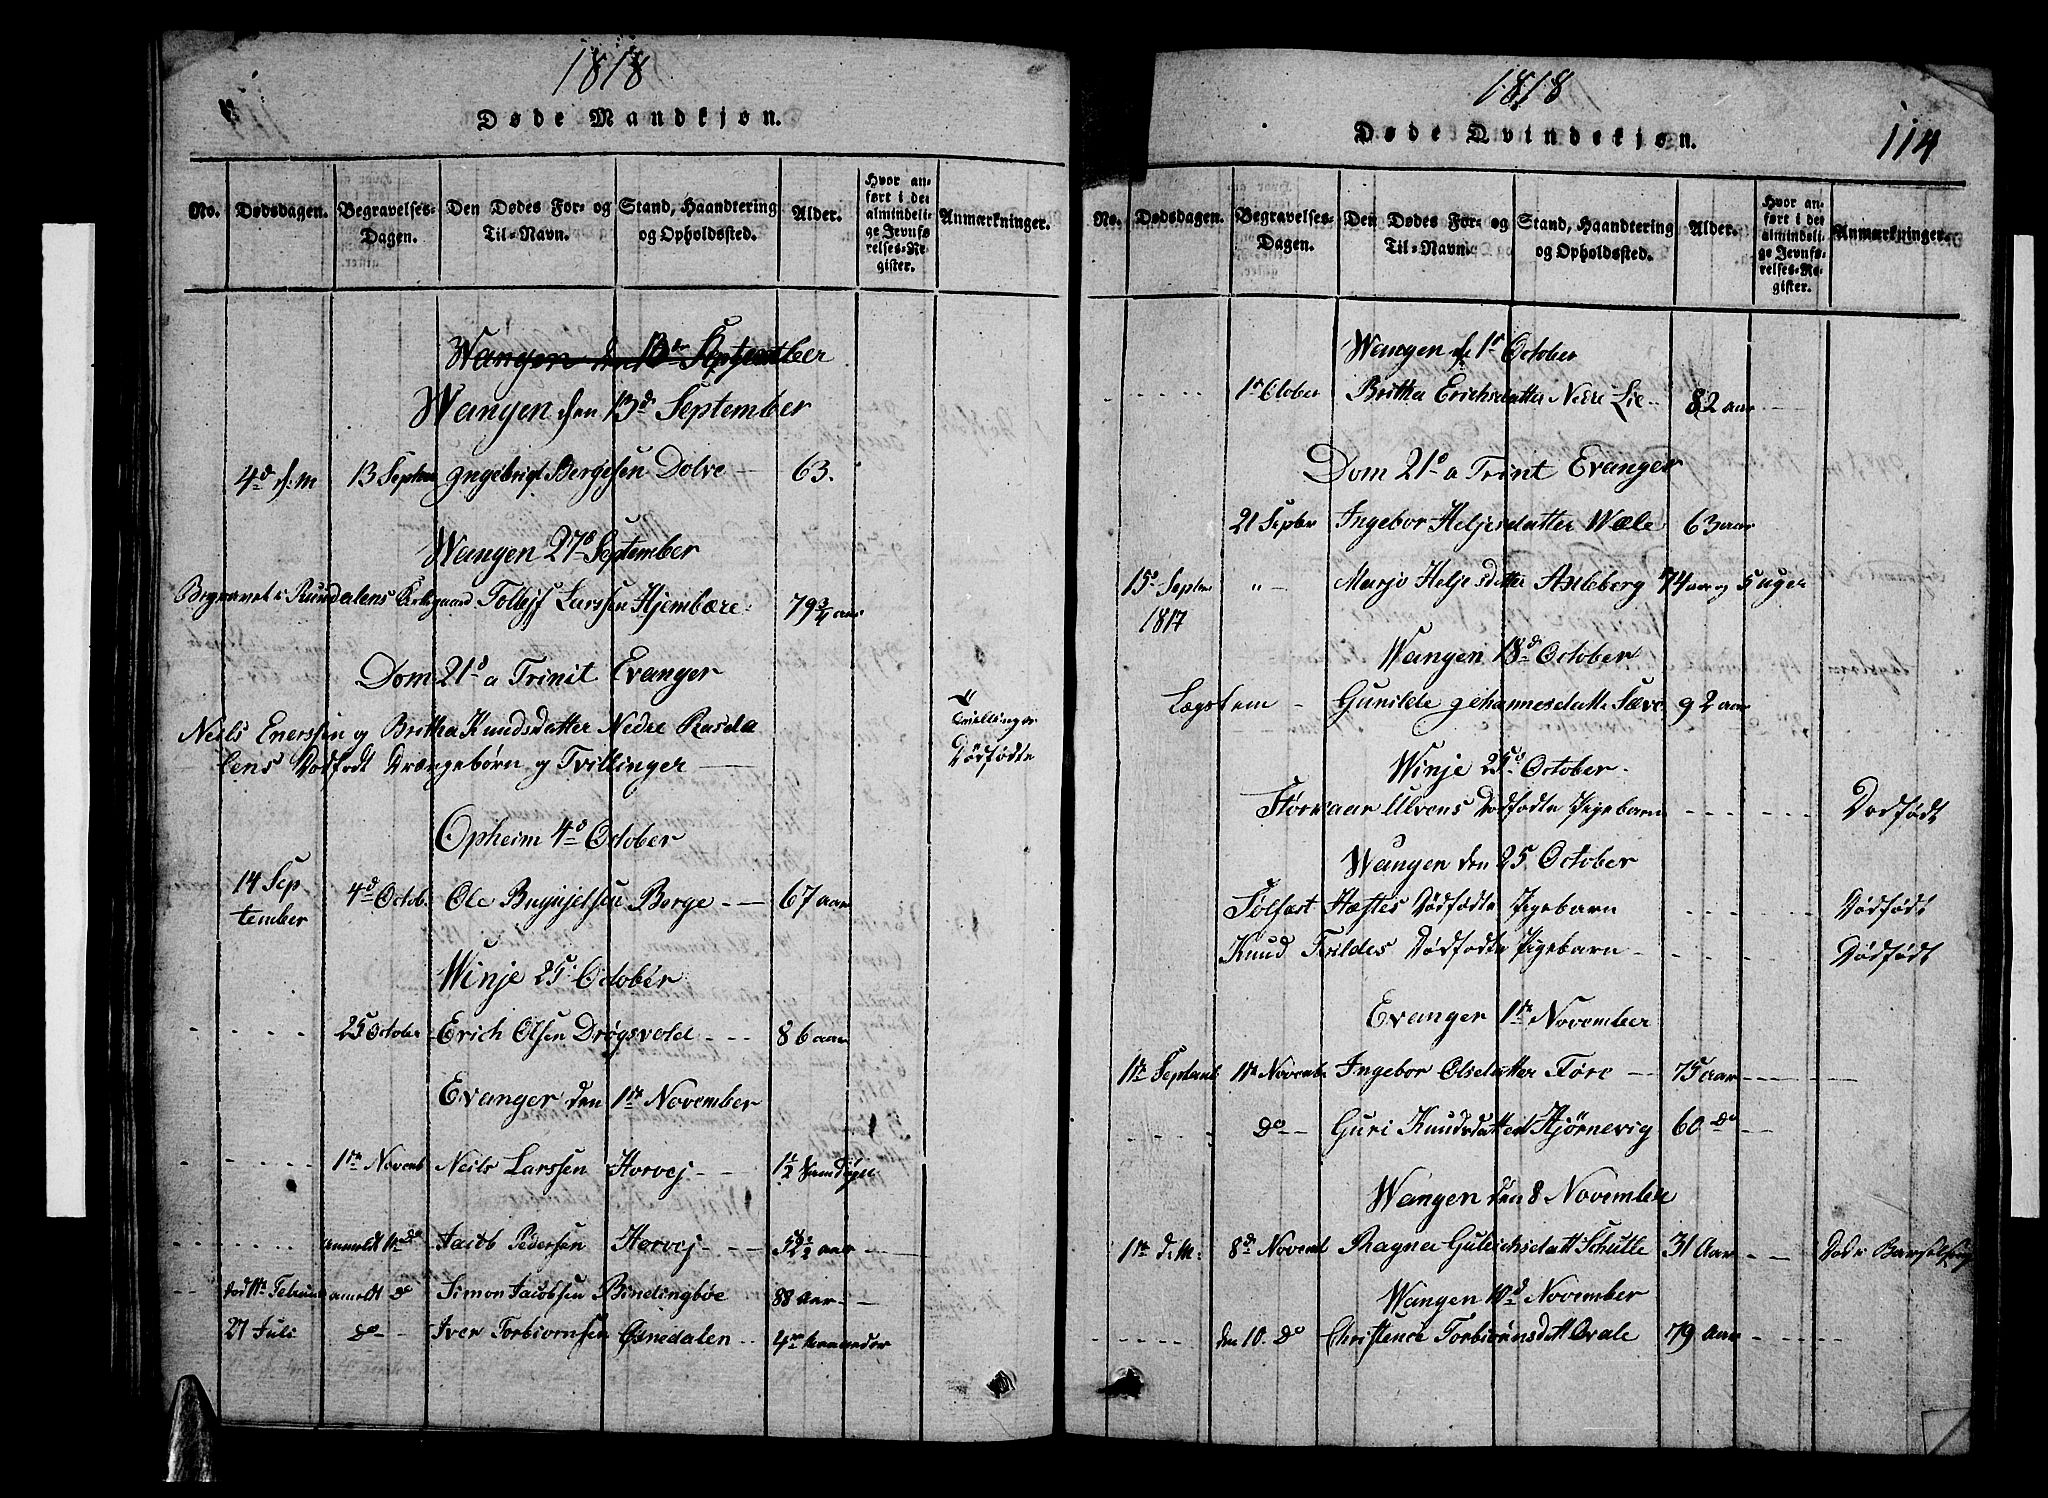 1818
Døde Mandkjøn.
No.
Dødsdagen.
Begravelses-
Dagen.
Den Dødes For- og
Til-Navn.
Stand, Haandtering
og Opholdssted.
Alder.
Hvor an-
ført i det
almindeli-
ge Jevnfø-
relses-Re-
gister.
Anmærkninger.
Wangen den 13de September
Wangen den 13d September
4d d: M 13 Septem Ingebrigt Bergesen Dolve 63.
Wangen 27d September
Begravet i Rundalens Kirkegaard Tollejf Larssen Hjembære 79 3/4 aar
Dom 21d a Trinit Evanger
Niels Enerssen og Britha Knudsdatter Nedre Rasda
lens Dødfødt Drængebørn og Tvillinger
Tvillinger
Dödfödte
Opheim 4d October
14 Sep
tember
4d Octob. Ole Brynjelsen Berge 67 aar
Winje 25d October
25 October Erich Olsen Drøgsvold 86 aar
Evanger den 1ste November
1ste Novemb Neils Larssen Horvej 1/2
anmeldt 1ste do Jacob Pedersen Horvej aar
død 11te Februar anmeldt do Simon Jacobsen Bindingbøe 88 aar
27 Juli do Iver Torbiørnsen Øsnedalen 4re Maaneder
1818
114
Døde Qvindekjøn.
No.
Dødsdagen.
Begravelses-
Dagen.
Den Dødes For- og
Til-Navn.
Stand, Haandtering
og Opholdssted.
Alder.
Hvor an-
ført i det
almindeli-
ge Jevnfø-
relses-Re-
gister.
Anmærkninger.
Wangen d 1ste October
1ste October Britha Erichsdatter Nedre Lie 82 aar
Dom 21d a Trinit Evanger
21 Septbr Ingebor Heljesdatter Wæle 63 aar
15d Septem " Marjo Heljesdatter Axleberg 74 aar og 5 uger
1817
Wangen 18d October
Lægstem Gunilde Johannesdatte Sæve 92 aar
Winje 25d October
Størkaar Ulvens Dødfødte Pigebarn Dødfødt
Wangen den 25 October
Sølfast Hæftes Dødfødte Pigebarn Dødfødt
Knud Tvildes Dødfødte Pigebarn Dødfødt
Evanger 1ste November
11te Septemb 1ste Novemb Ingebor Olsdatter Føre 75 aar
do Guri Knudsdatter Hjørnevig 60 do
Wangen den 8 November
1ste d: M: 8d Novemb Ragna Gulichsdatt Schutle 31 Aar Død i Barselseng
Wangen 10d November
den 10. do Christence Torbiørnsdatt Qvale 79 Aar